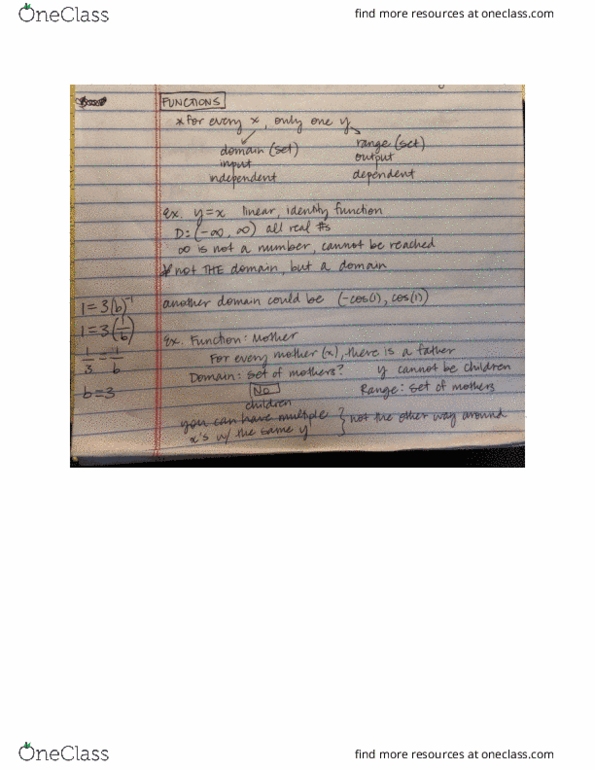 OneClass
find more resources at oneclass.com
FUNCTIONS
* for every x, only one y
domain (set) range (set)
input output
independent dependent
ex. y=x linear, identity function
D: (-∞, ∞) all real #s
∞ is not a number, cannot be reached
* not THE domain, but a domain
another domain could be (-cos(1), cos(1))
1=3(b)⁻¹
1=3(1/b)
1/3 = 1/b
b=3
Ex. Function: Mother
For every mother (x), there is a father
Domain: set of mothers? y cannot be children
No Range: set of mothers
children
you can have multiple } not the other way around
x's w/ the same y
OneClass
find more resources at oneclass.com